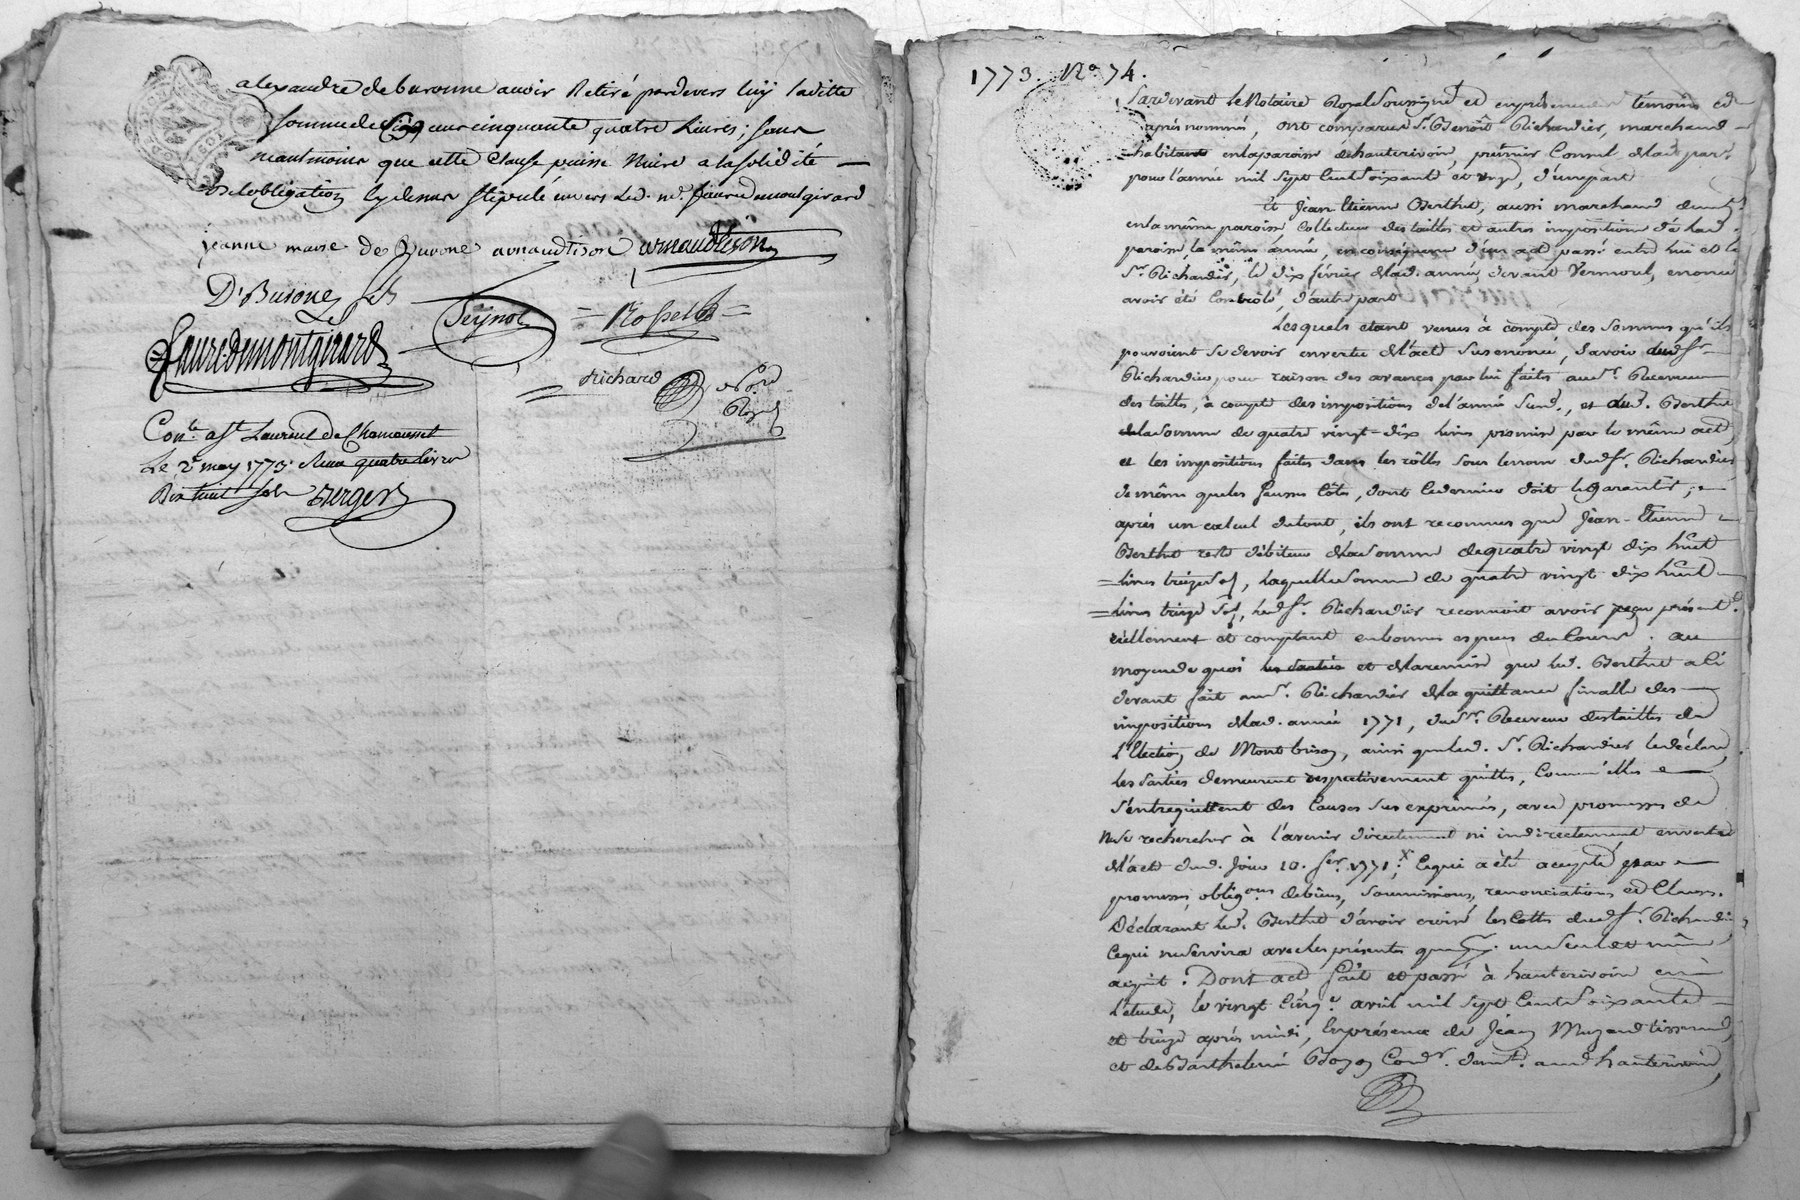 alexandre deburonne avoir Retiré pardevers luy laditte
somme de cinquante quatre Livres; sans
neantmoins que cette Clause puisse Nuire a la solidité
de lobligation cy dessus stipulé envers led. m.
jeanne marie de Burone arnaudtison arnaudtison
D'Burone
faure demontgirard Peynot Rosset
Richard No.re Royal
Con.lé a S.t Laurent de Chamousset
Le 2 may 1773. Reçu quatre livres
huit sols Berger
1773. N.o 74.
Pardevant le Notaire Royal Soussigné et en présence des témoins cy
après nommés, ont comparus S.r Benoît Richardier, marchand
habitant en la paroisse de hauterivoire, premier Consul de lad. par.
pour l'année mil Sept Cent Soixante et onze, d'une part
Et Jean Etienne Berthet, aussi marchand demt.
en la même paroisse, Collecteur des tailles et autres impositions de lad.
paroisse, la même année, en conséquence d'un acte passé entre lui et le
S.r Richardier, le dix février de lad. année, devant Vermorel, enoncé
avoir été Controlé, d'autre part
Lesquels etant venus à compte des sommes qu'ils
pouvoient se devoir en vertu de l'acte susenoncé, savoir led. s.r
Richardier pour raison des avances par lui faites au s.r Receveur
des tailles, à compte des impositions de l'année sus d., et led. Berthet
de la somme de quatre vingt-dix livres promise par le même acte,
et les impositions faites dans les rôlles sous le nom dud. s.r Richardier
de même que les fausses Côtes, dont ce dernier doit le garantir;
après un calcul du tout, ils ont reconnus que Jean-Etienne
Berthet reste débiteur de la somme de quatre vingt dix huit
livres treize sols, laquelle somme de quatre vingt dix huit
livres treize sols, led. s.r Richardier reconnoit avoir reçu présent.
réellement et comptant en bonnes espèces du Cours. au
moyen de quoi les parties et de la remise que led. Berthet a ci
devant fait au s.r Richardier de la quittance finalle des
impositions de lad. année 1771, du s.r Receveur des tailles de
l'Election de Montbrison, ainsi que led. S.r Richardier le déclare,
les parties demeurent respectivement quittes, Comme elles
s'entrequittent des Causes sus exprimées, avec promesses de
ne se rechercher à l'avenir directement ni indirectement en vertu
de l'acte dud. jour 10. fer. 1771; x Ce qui a été accepté par
promesses, oblig.ons de biens, soumissions, renonciations et Clauses.
Déclarant led. Berthet d'avoir croisé les Cottes dud. s.r Richardier
Ce qui ne servira avec les présentes que d'un seul et même
acquit. Dont acte fait et passé à hauterivoire en
l'étude, le vingt Cinq.e avril mil Sept Cent Soixante
et treize après midi, En présence de Jean Muzard tisserand,
et de Barthelemi Cord.r demt. aud. hauterivoire,